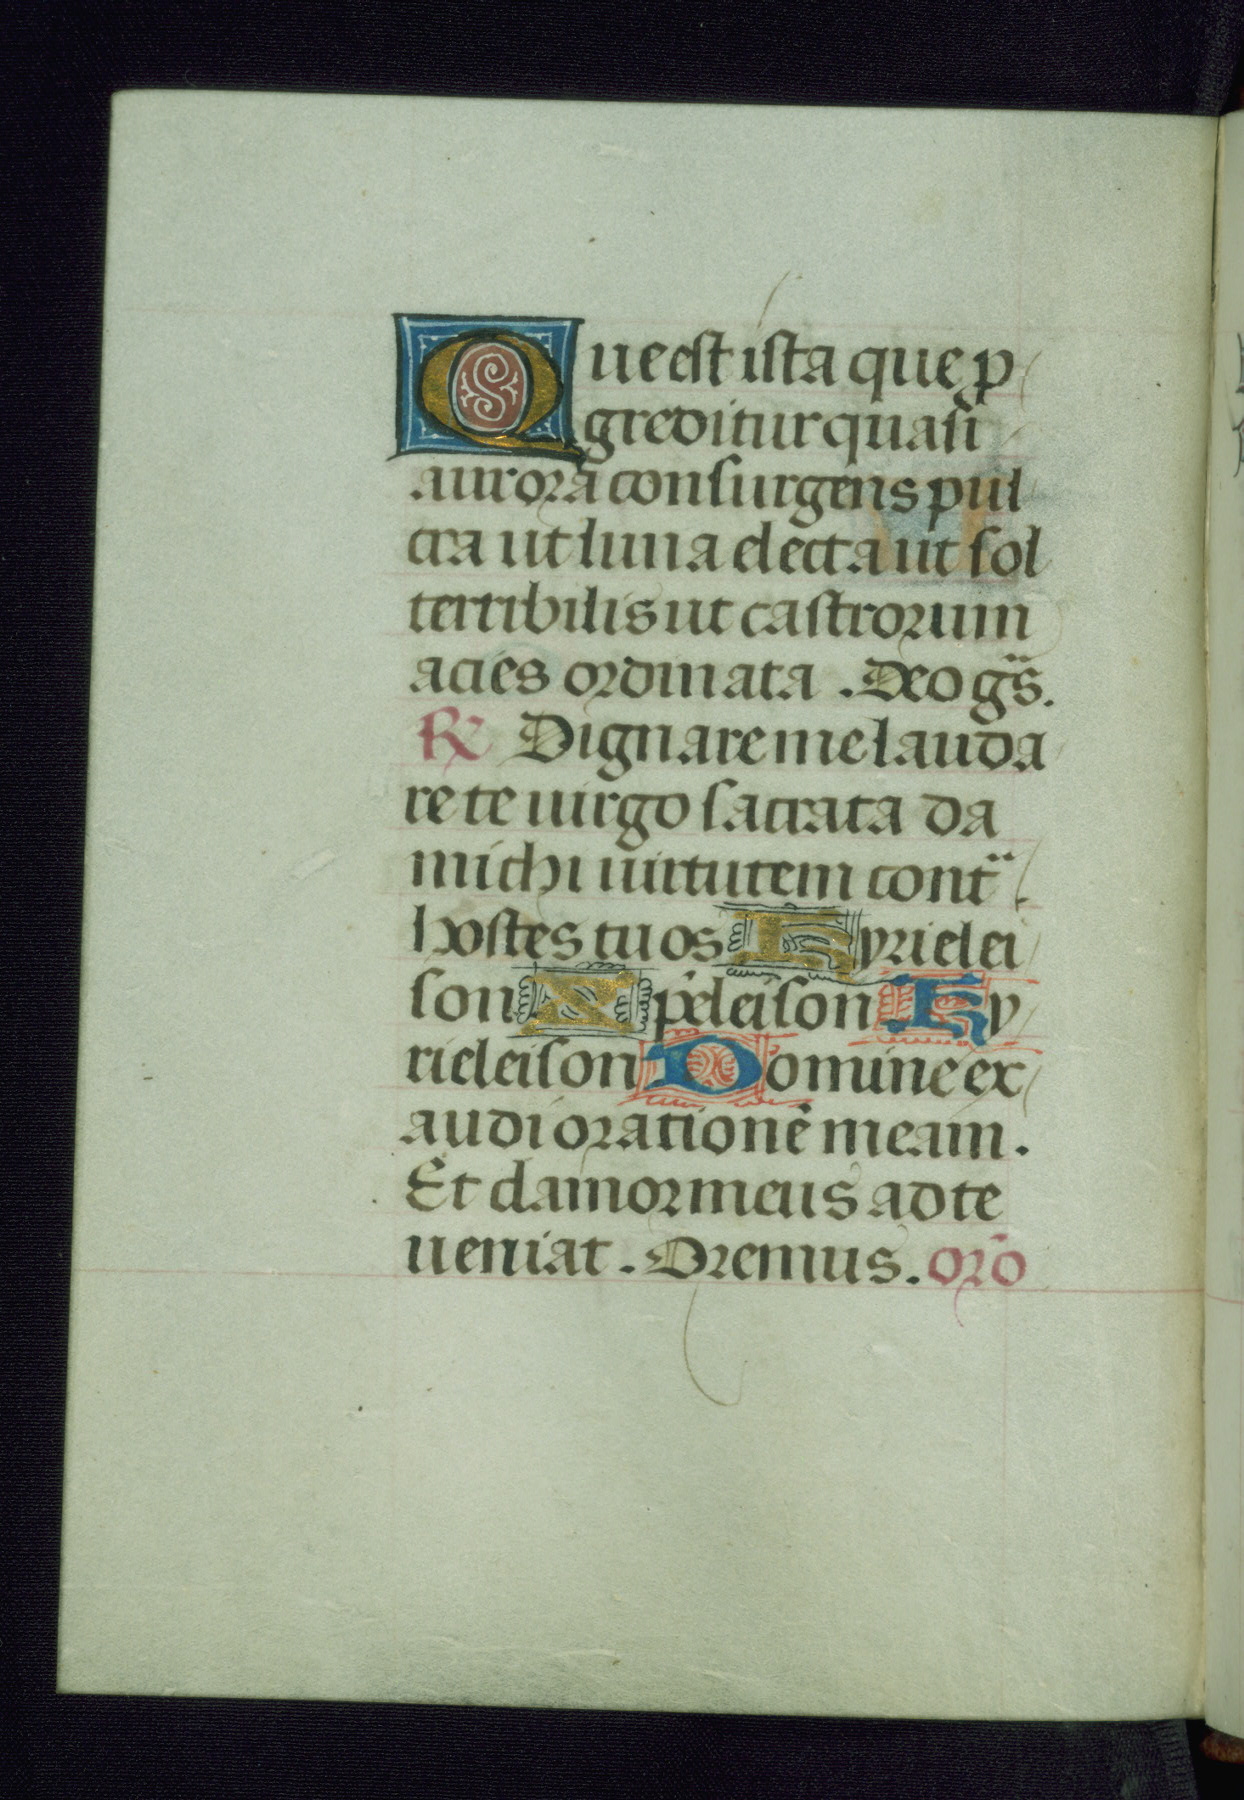 Que est ista que p
greditur quasi
aurora consurgens pul
cra ut luna electa ut sol
terribilis ut castrorum
acies ordinata . Deo gr̃s.
℟ Dignare me lauda
re te uirgo sacrata da
michi uirtutem cont̃
hostes tuos Kyrielei
son Xp̃eleison Ky
rieleison Domine ex
audi orationẽ meam .
Et clamor meus ad te
ueniat . Oremus . or̃o